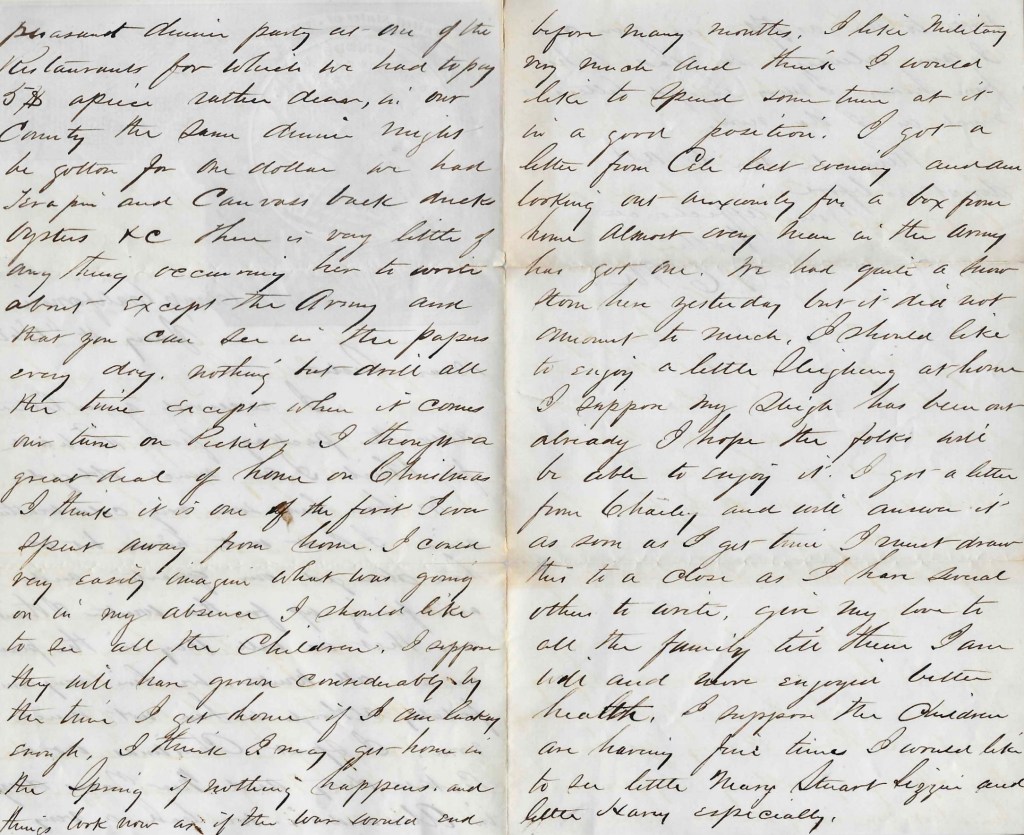 pleasant dinner party at one of the
Restaurants for which we had to pay
5$ apiece rather dear, in our
County the same dinner might
be gotton for one dollar we had
Terapin and Canvass back ducks
Oysters &C there is very little of
any thing occurring her to write
about except the Army and
that you can see in the papers
every day. nothing but drill all
the time except when it comes
our turn on Picket, I thought a
great deal of home on Christmas
I think it is one of the first I ever
spent away from home. I could
very easily imagine what was going
on in my absence I should like
to see all the Children. I suppose
they will have grown considerably by
the time I get home if I am lucky
enough, I think I may get home in
the Spring if nothing happens. and
things look now as if the war would end
before many months. I like Military
very much and think I would
like to spend some time at it
in a good position. I got a
letter from last evening and am
looking out anxiously for a box from
home almost every man in the Army
has got one. We had quite a snow
storm here yesterday but it did not
amount to much, I should like
to enjoy a little Sleighing at home
I suppose my sleigh has been out
already I hope the folks will
be able to enjoy it. I got a letter
from Charley and will answer it
as soon as I get time I must draw
this to a close as I have several
others to write, give my love to
all the family tell them I am
well and never enjoyed better
health. I suppose the Children
are having fine times I would like
to see little Mary Stuart Lizzie and
little Harry especially.